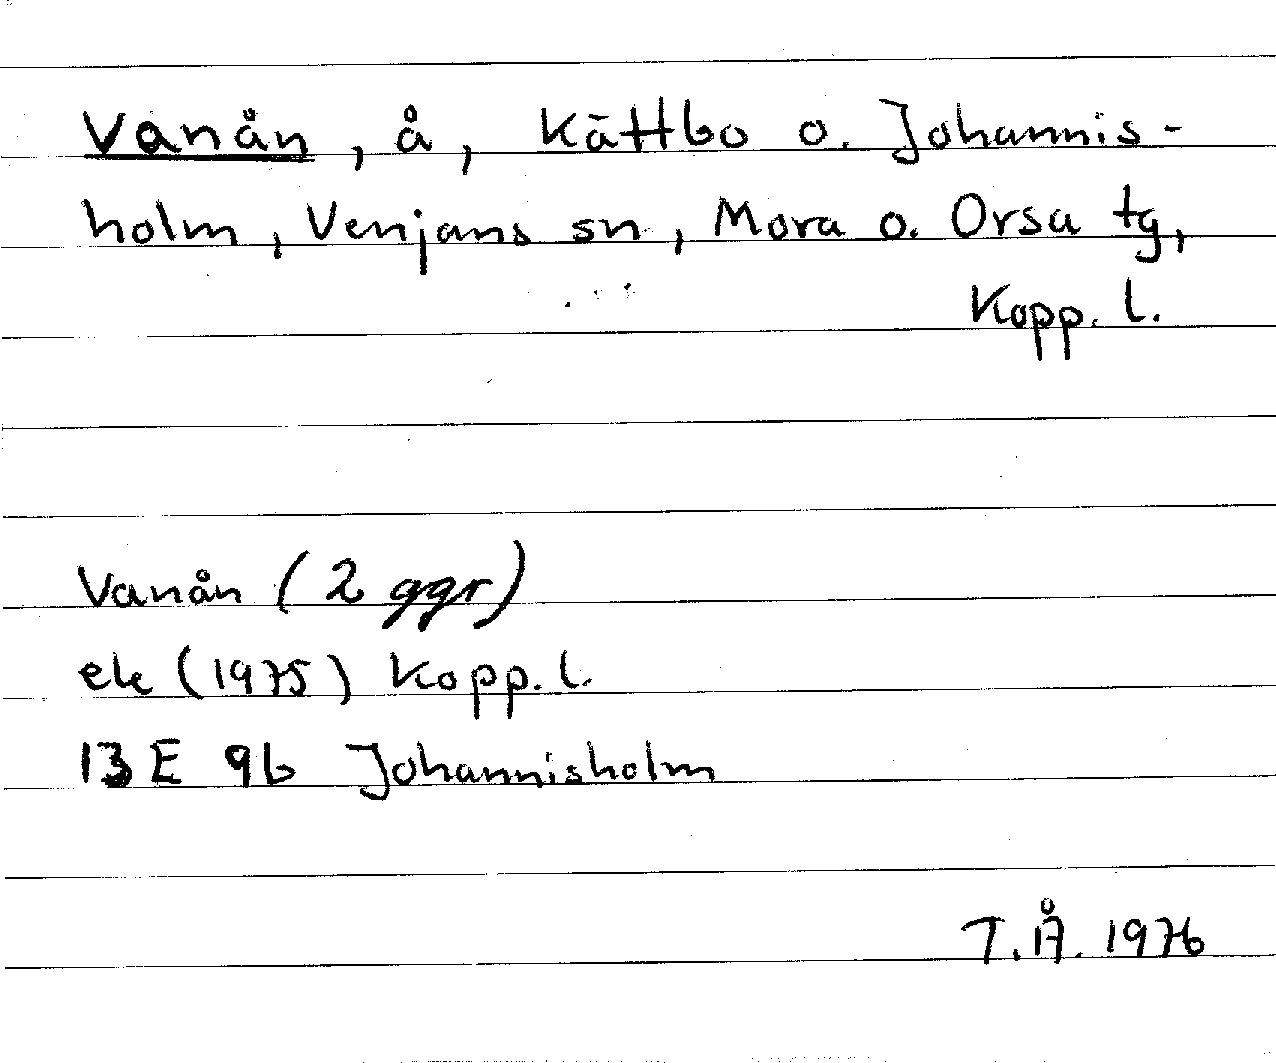 Vanån, å, Kättbo o. Johannis-
holm, Venjans sn, Mora o. Orsa tg,
Kopp. l.
Vanån (2 ggr)
ek (1975) Kopp. l.
13 E 9b Johannisholm
T.Å. 1976